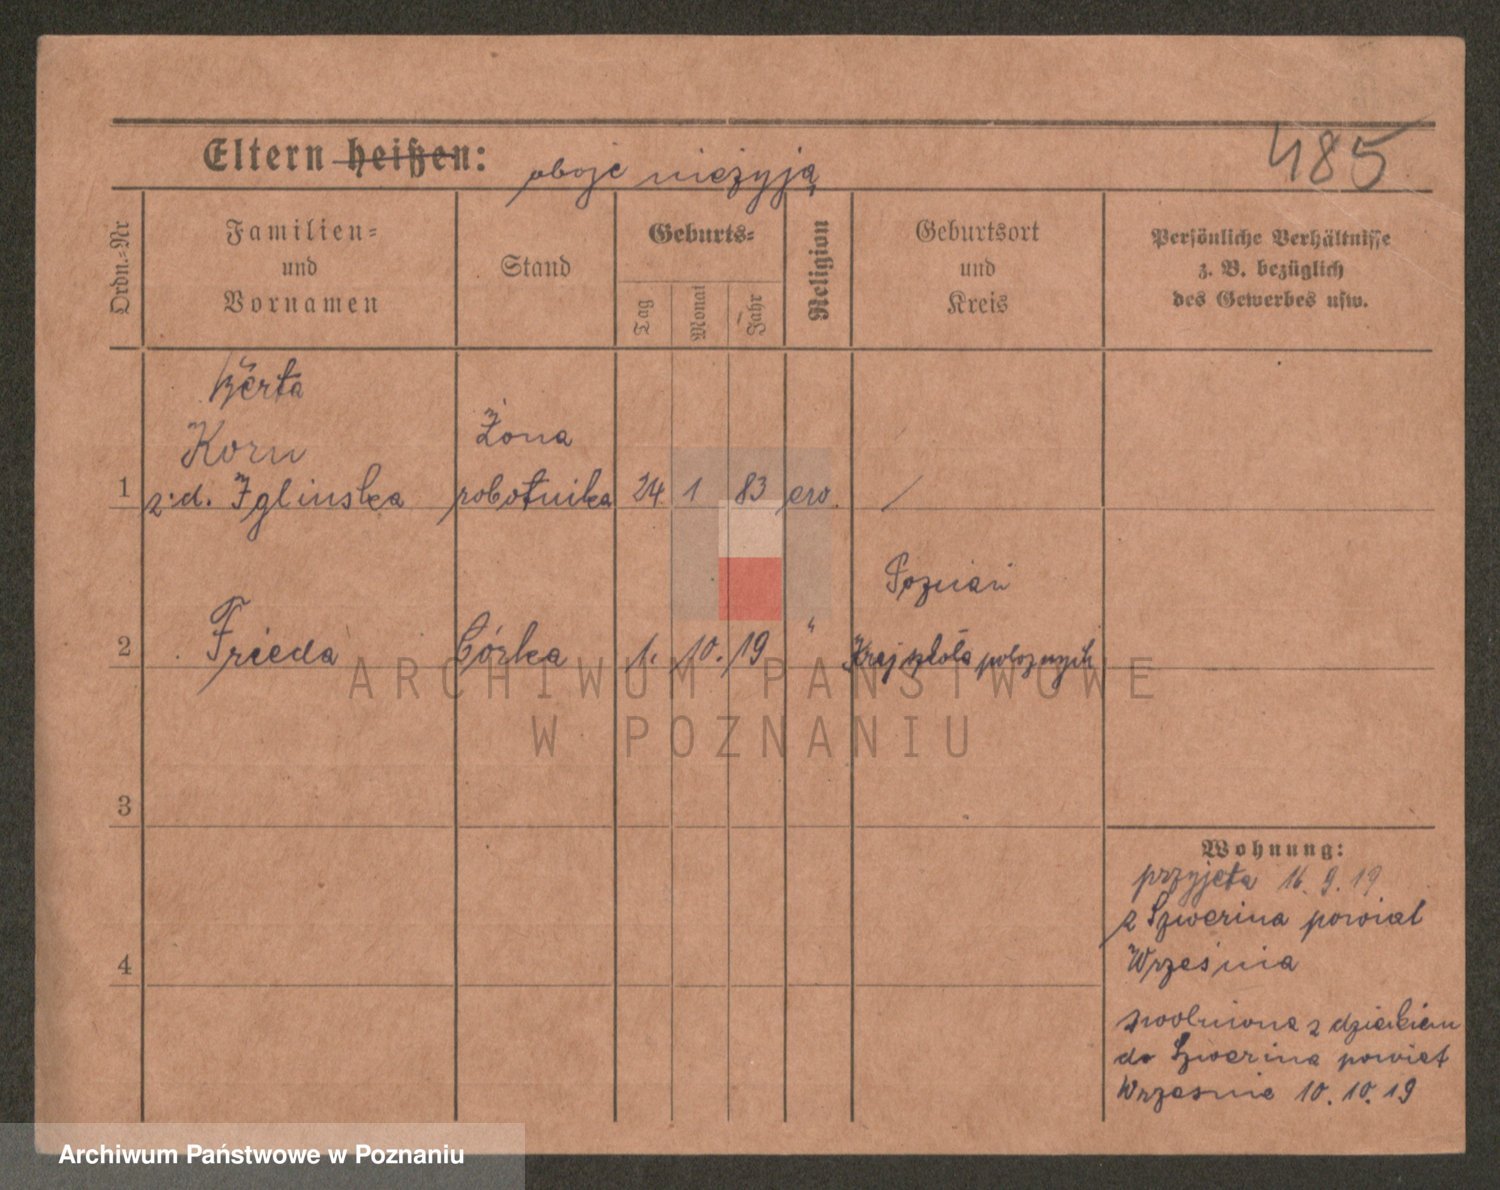 485
Eltern heißen: oboje nieżyją
Ordn.-Nr
Familien-
und
Vornamen
Stand
Geburts-
Tag
Monat
Jahr
Religion
Geburtsort
und
Kreis
Persönliche Verhältnisse
z. B. bezüglich
des Gewerbes usw.
Berta
Korn
1 z.d. Iglinska
Żona
robotnika
24 1 83 ew /
2 Frieda Córka 1. 10. 19 "
Poznań
Kraj szkoła położnych
3
4
Wohnung:
przyjęta 16. 9. 19
z Szwerina powiat
Września
zwolniona z dzieckiem
do Szwerina powiat
Wrzesnie 10. 10. 19
ARCHIWUM PAŃSTWOWE
W POZNANIU
Archiwum Państwowe w Poznaniu